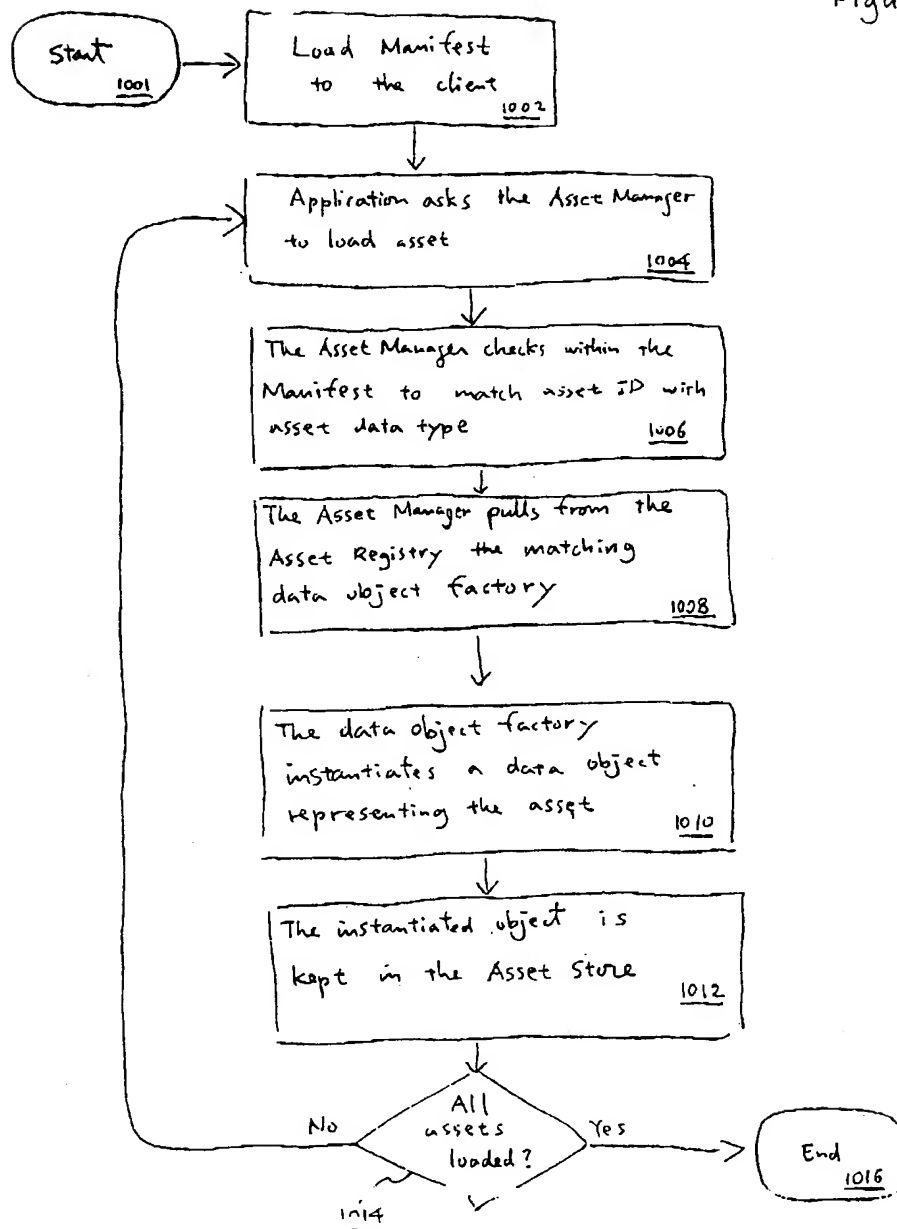 Figu
Start
1001
Load Manifest
to the client
1002
Application asks the Asset Manager
to load asset
1004
The Asset Manager checks within the
Manifest to match asset ID with
asset data type
1006
The Asset Manager pulls from the
Asset Registry the matching
data object factory
1008
The data object factory
instantiates a data object
representing the asset
1010
The instantiated object is
kept in the Asset Store
1012
All
assets
loaded?
No
Yes
1014
End
1016